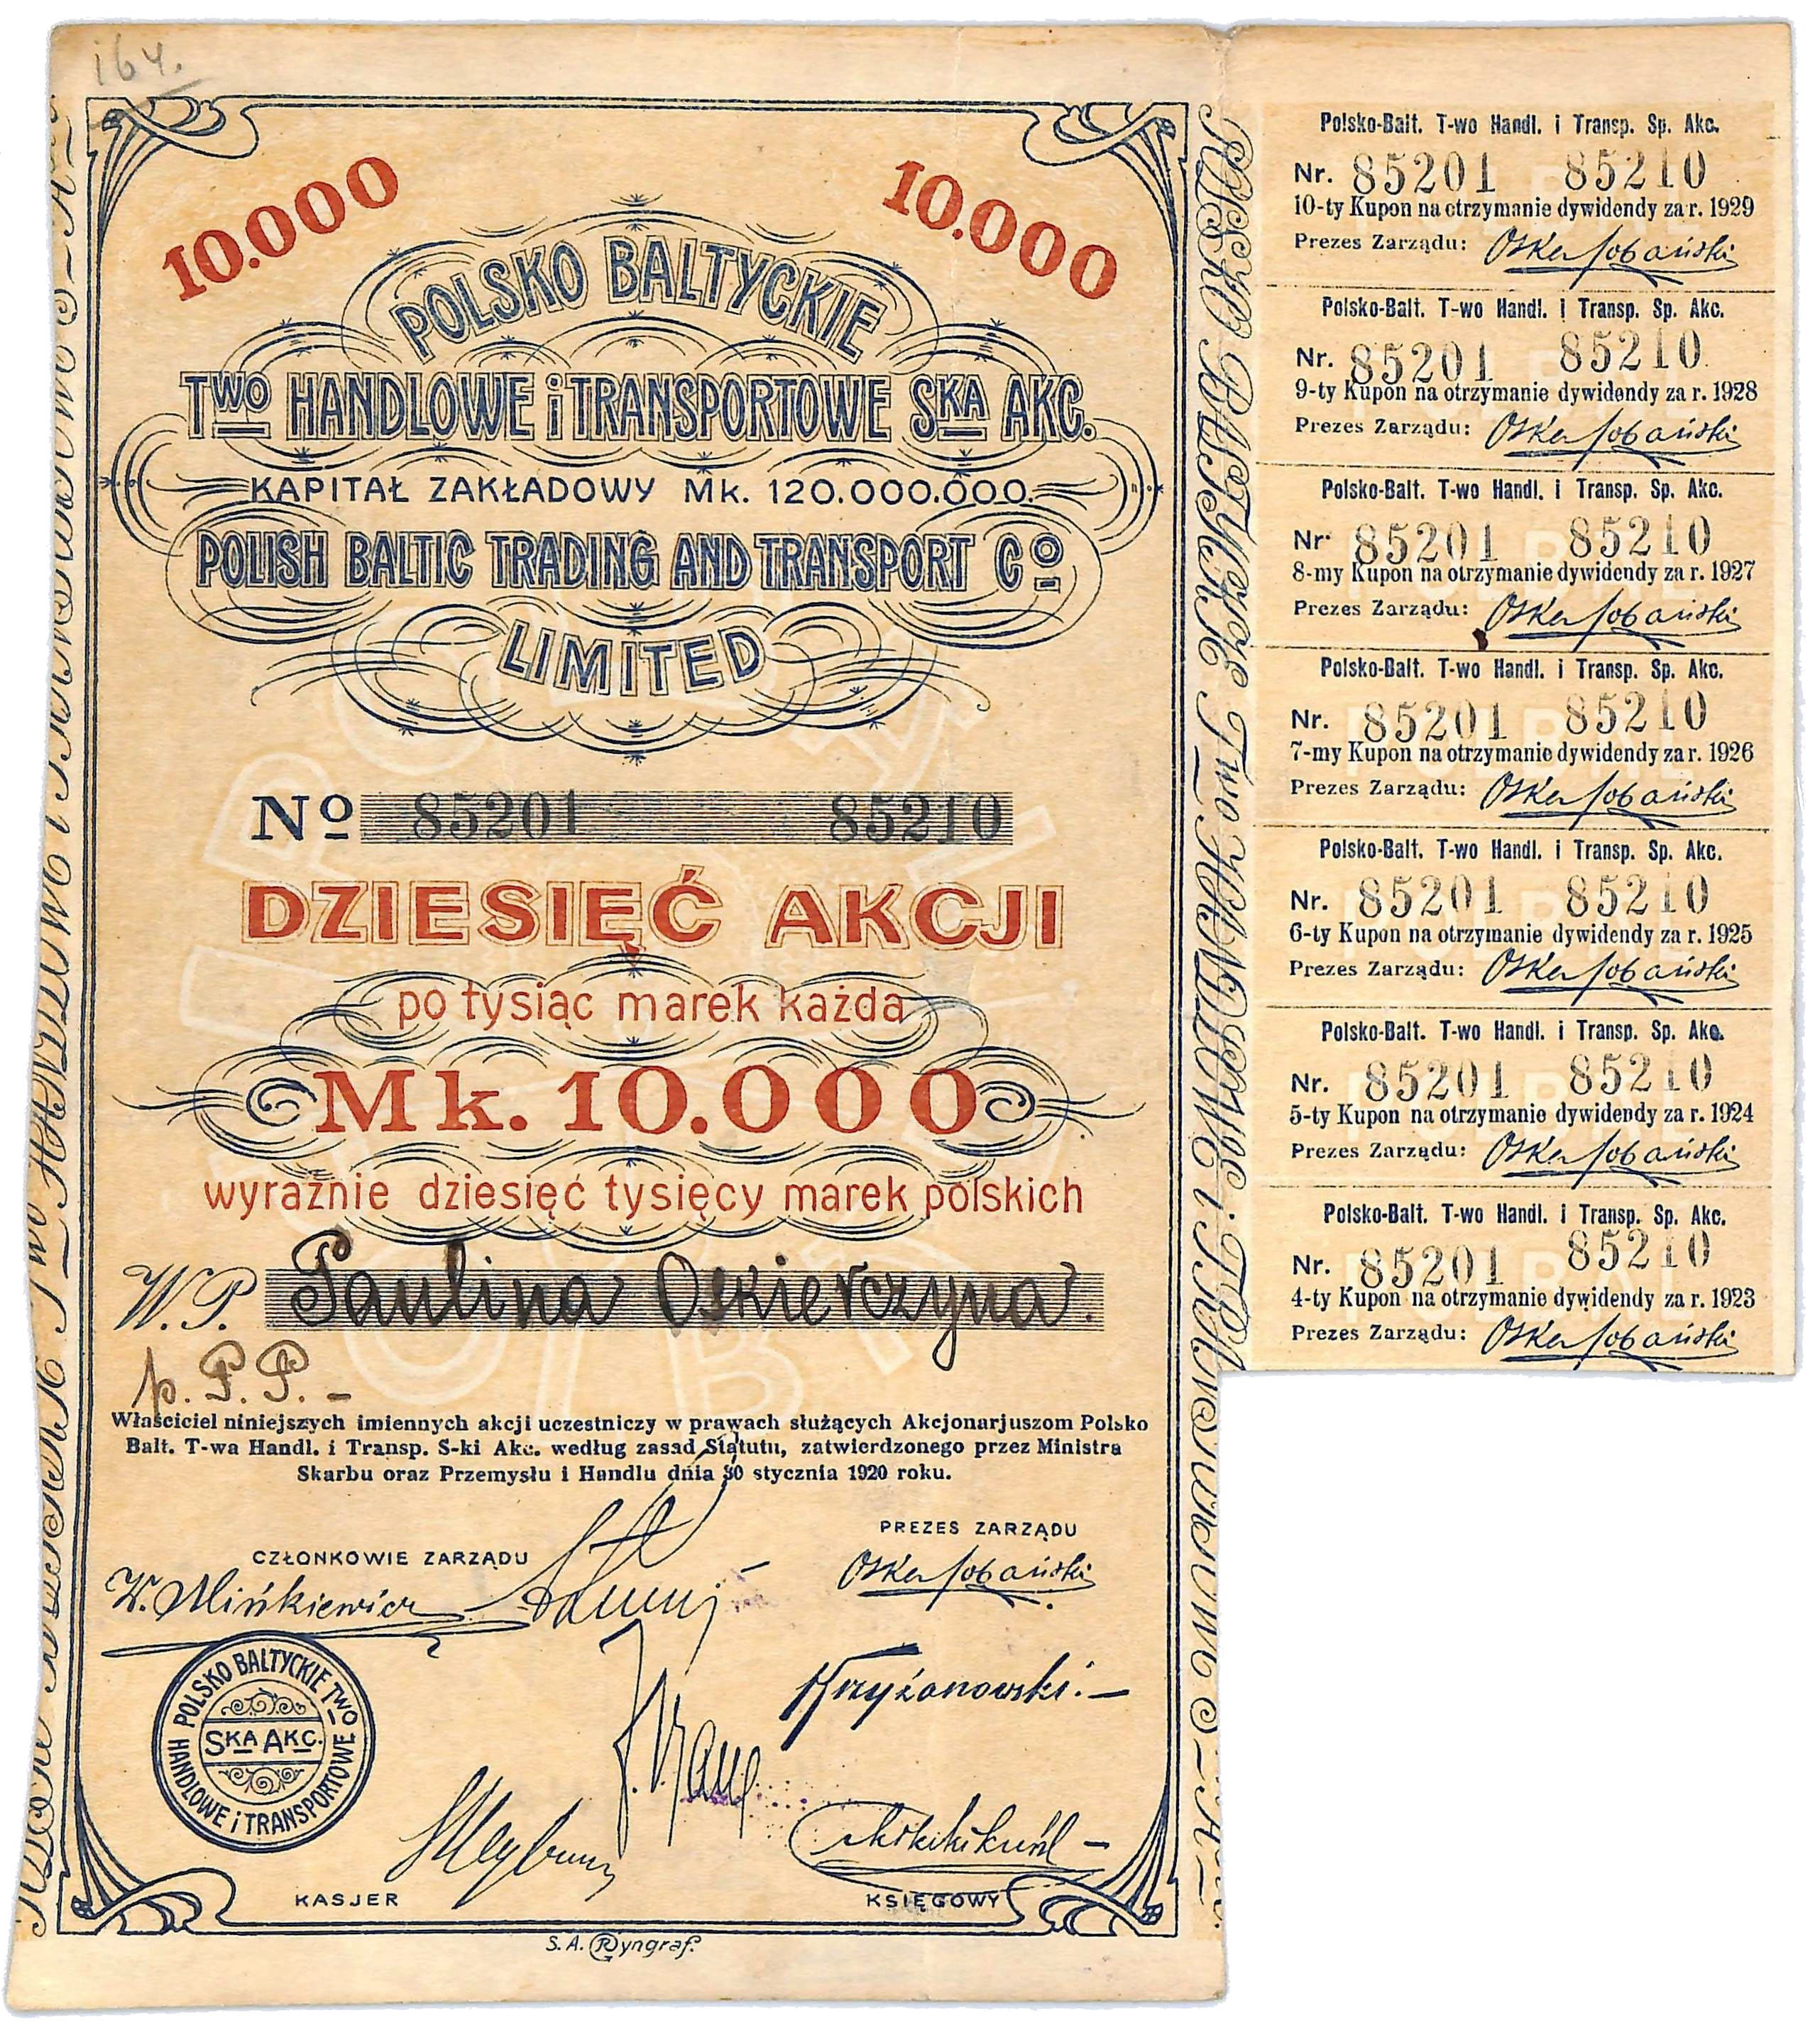 164.
10.000
10.000
POLSKO BALTYCKIE
TWO HANDLOWE i TRANSPORTOWE SKA AKC.
KAPITAŁ ZAKŁADOWY Mk. 120.000.000.
POLISH BALTIC TRADING AND TRANSPORT Co
LIMITED
No 85201 85210
DZIESIĘĆ AKCJI
po tysiąc marek każda
Mk. 10.000
wyraźnie dziesięć tysięcy marek polskich
W.P. Paulina Oskierczyna.
p. P. P. –
Właściciel niniejszych imiennych akcji uczestniczy w prawach służących Akcjonarjuszom Polsko
Balt. T-wa Handl. i Transp. S-ki Akc. według zasad Statutu, zatwierdzonego przez Ministra
Skarbu oraz Przemysłu i Handlu dnia 30 stycznia 1920 roku.
CZŁONKOWIE ZARZĄDU
PREZES ZARZĄDU
W. Mińkiewicz
Oskar Sobański
Krzyżanowski. –
POLSKO BALTYCKIE TWO
HANDLOWE i TRANSPORTOWE
SKA AKC.
KASJER
KSIĘGOWY
S. A. Ryngraf.
Polsko-Balt. T-wo Handl. i Transp. Sp. Akc.
Nr. 85201 85210
10-ty Kupon na otrzymanie dywidendy za r. 1929
Prezes Zarządu: Oskar Sobański
Polsko-Balt. T-wo Handl. i Transp. Sp. Akc.
Nr. 85201 85210
9-ty Kupon na otrzymanie dywidendy za r. 1928
Prezes Zarządu: Oskar Sobański
Polsko-Balt. T-wo Handl. i Transp. Sp. Akc.
Nr. 85201 85210
8-my Kupon na otrzymanie dywidendy za r. 1927
Prezes Zarządu: Oskar Sobański
Polsko-Balt. T-wo Handl. i Transp. Sp. Akc.
Nr. 85201 85210
7-my Kupon na otrzymanie dywidendy za r. 1926
Prezes Zarządu: Oskar Sobański
Polsko-Balt. T-wo Handl. i Transp. Sp. Akc.
Nr. 85201 85210
6-ty Kupon na otrzymanie dywidendy za r. 1925
Prezes Zarządu: Oskar Sobański
Polsko-Balt. T-wo Handl. i Transp. Sp. Akc.
Nr. 85201 85210
5-ty Kupon na otrzymanie dywidendy za r. 1924
Prezes Zarządu: Oskar Sobański
Polsko-Balt. T-wo Handl. i Transp. Sp. Akc.
Nr. 85201 85210
4-ty Kupon na otrzymanie dywidendy za r. 1923
Prezes Zarządu: Oskar Sobański